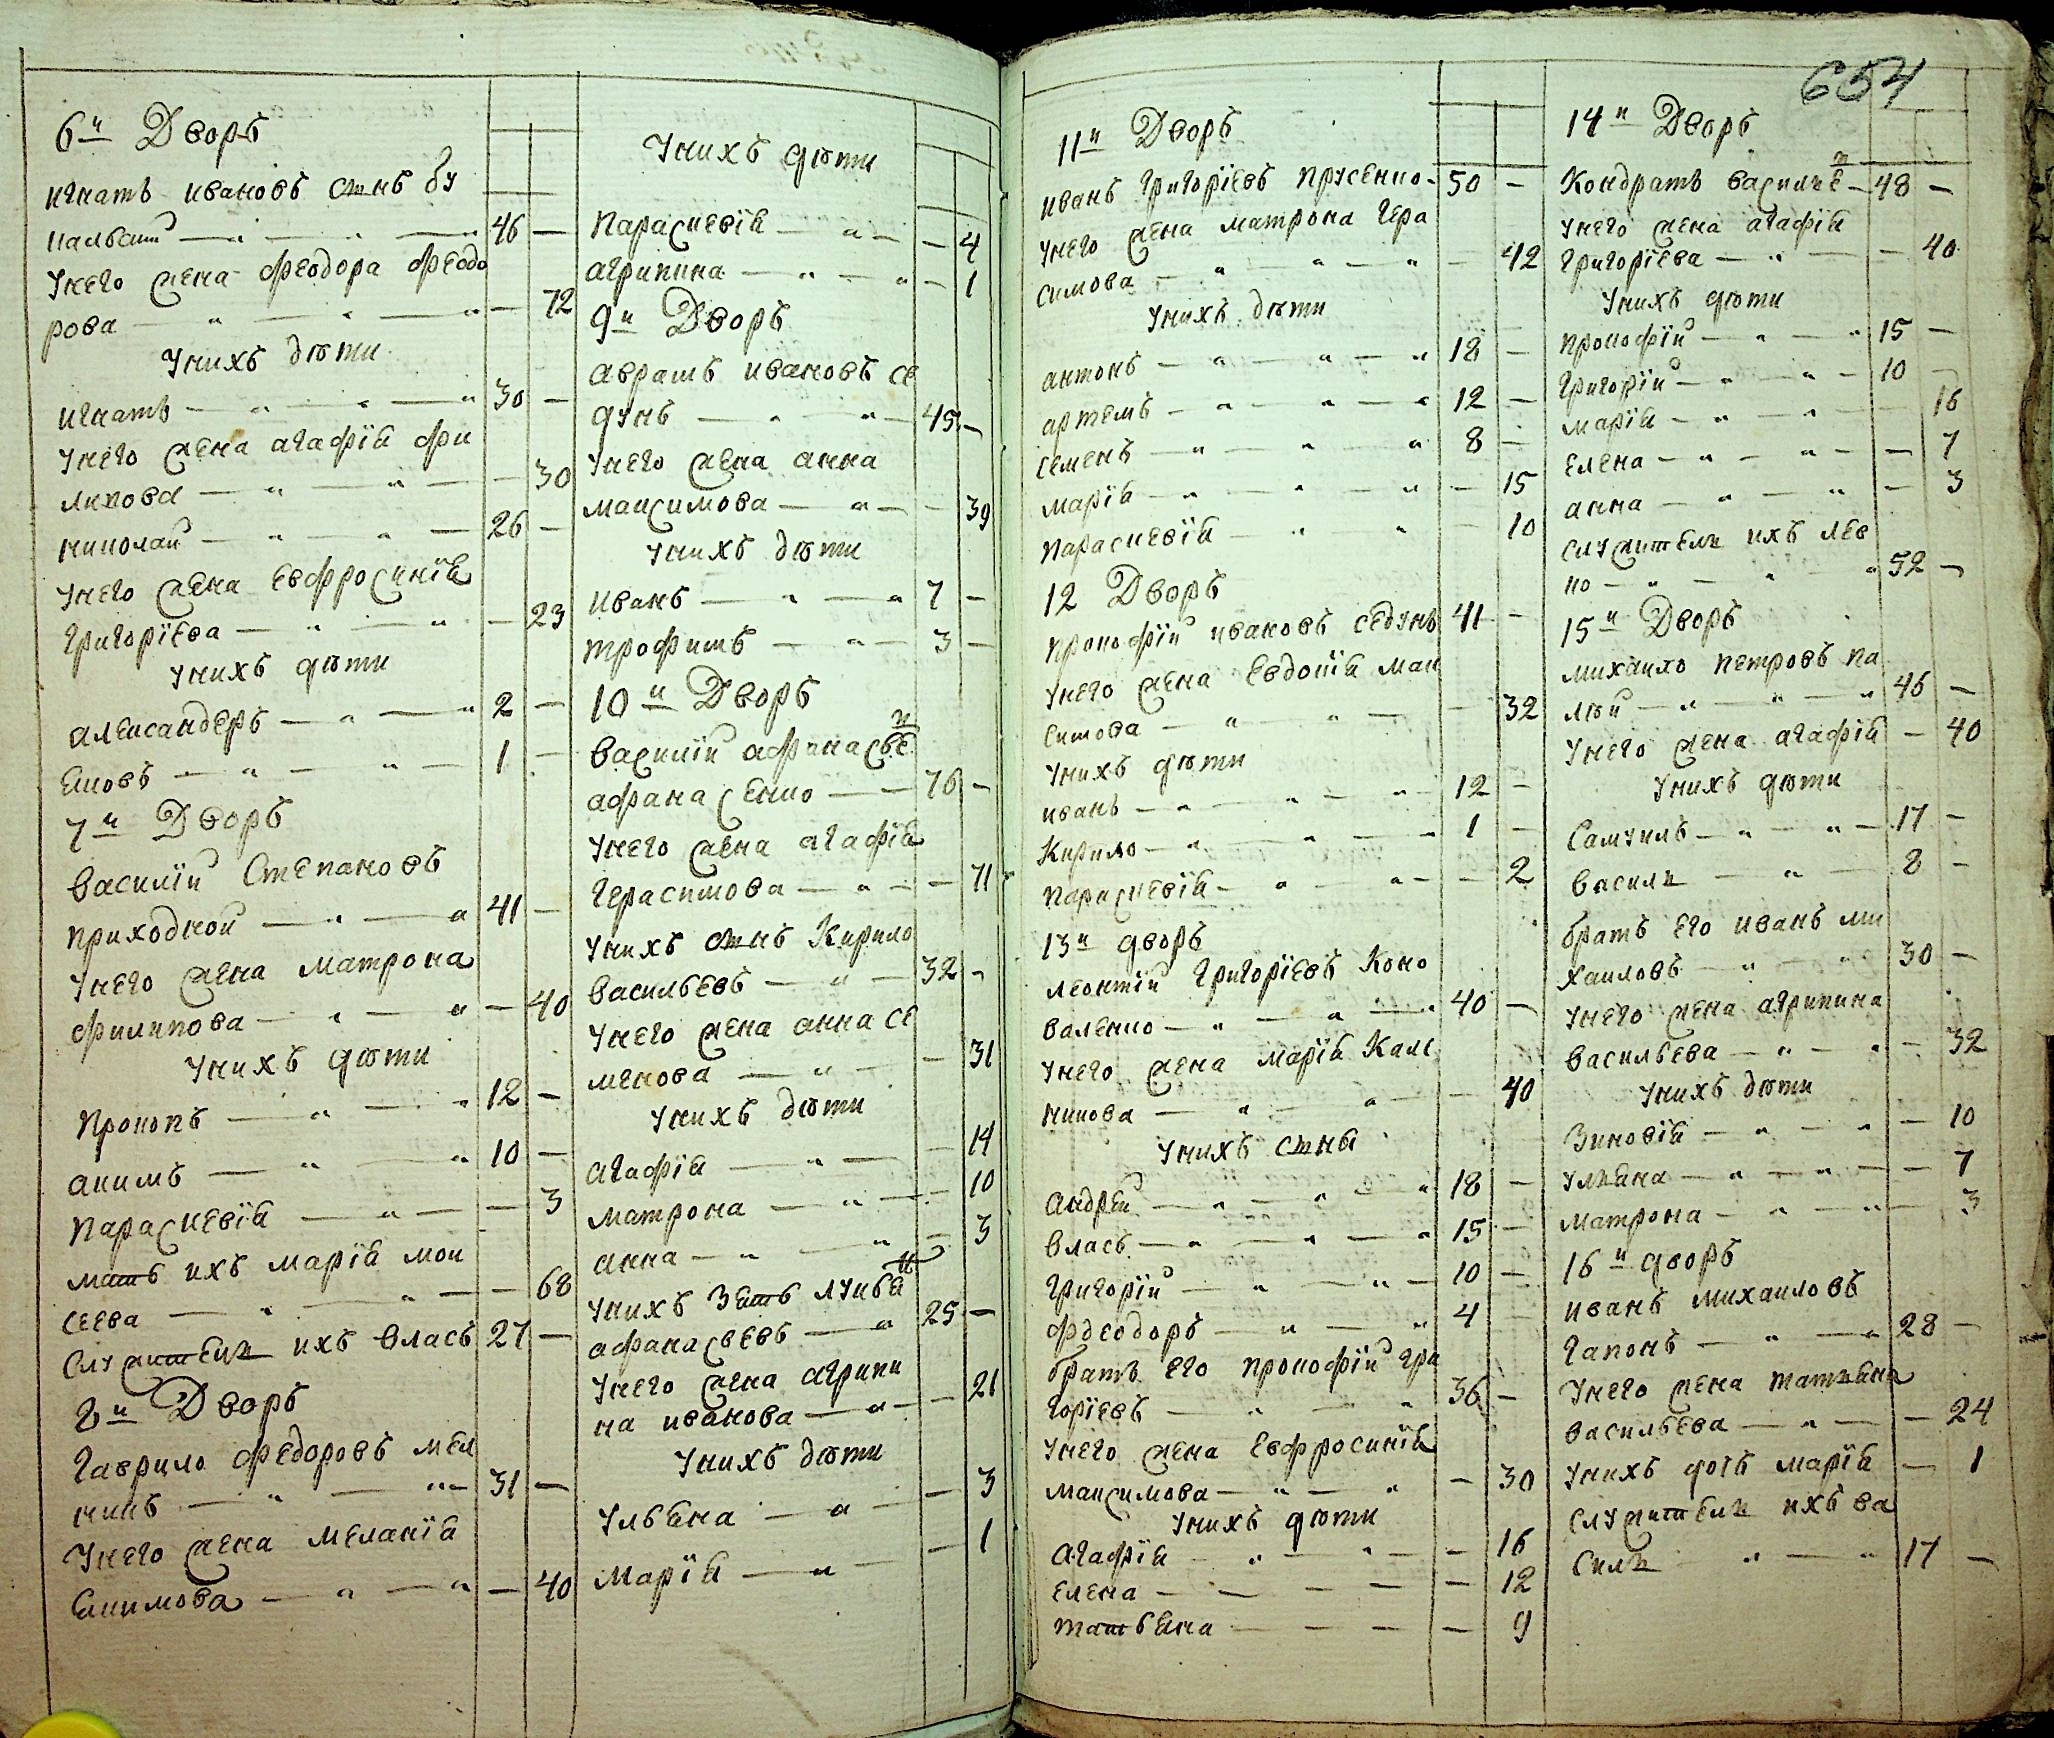 6й Дворъ
игнатъ ивановъ сынъ бу
налвои — 46 —
Унего жена феодора феодо
рова — 72
Унихъ дѣти
игнатъ — 30 —
Унего жена агафїя фи
липова — 30
николаи — 26 —
Унего жена евфросинїя
григорїева — 23
Унихъ дѣти
александеръ — 2 —
яковъ — 1 —
7й Дворъ
василїи Степановъ
приходкои — 41 —
Унего жена матрона
филипова — 40
Унихъ дѣти
прокопъ — 12 —
акимъ — 10 —
параскевїя — 3
мать ихъ марїя мои
сеева — 68
служитель ихъ власъ 27 —
8й Дворъ
гаврило федоровъ мел
никъ — 31 —
Унего жена меланїя
екимова — 40
Унихъ дѣти
параскевїя — 4
агрипина — 1
9й Дворъ
аврамъ ивановъ се
дунъ — 45 —
Унего жена анна
максимова — 39
Унихъ дѣти
иванъ — 7 —
трофимъ — 3 —
10й Дворъ
василїи афанасьевъ
афанасенко — 76 —
Унего жена агафїя
герасимова — 71
Унихъ сынъ Кирило
васильевъ — 32 —
Унего жена анна се
менова — 31
Унихъ дѣти
агафїя — 14
матрона — 10
анна — 3
Унихъ зять лукья
афанасьевъ — 25 —
Унего жена агрипи
на иванова — 21
Унихъ дѣти
Ульяна — 3
Марїя — 1
654
11й Дворъ
иванъ григорїевъ прусенко — 50 —
Унего жена матрона гера
симова — 42
Унихъ дѣти
антонъ — 18 —
артемъ — 12 —
семенъ — 8 —
марїя — 15
параскевїя — 10
12 Дворъ
прокофїи ивановъ седунъ 41 —
Унего жена евдокїя мак
симова — 32
Унихъ дѣти
иванъ — 12 —
Кирило — 1 —
параскевїя — 2
13й дворъ
леонтїи григорїевъ Коно
валенко — 40 —
Унего жена марїя Кале
никова — 40
Унихъ сыны
андреи — 18 —
власъ — 15 —
григорїи — 10 —
феодоръ — 4 —
братъ его прокофїи гри
горїевъ — 36 —
Унего жена евфросинїя
максимова — 30
Унихъ дѣти
агафїя — 16
елена — 12
татьяна — 9
14й Дворъ
Кондратъ василье — 48 —
Унего жена агафїя
григорїева — 40
Унихъ дѣти
прокофїи — 15 —
григорїи — 10 —
марїя — 16
елена — 7
анна — 3
служитель ихъ лев
ко — 52 —
15й Дворъ
михаило петровъ па
лѣи — 46 —
Унего жена агафїя — 40
Унихъ дѣти
Самуилъ — 17 —
василь — 8 —
братъ его иванъ ми
хаиловъ — 30 —
Унего жена агрипина
васильева — 32
Унихъ дѣти
Зиновїя — 10
Ульяна — 7
матрона — 3
16й дворъ
иванъ михаиловъ
гапонъ — 28 —
Унего жена татьяна
васильева — 24
Унихъ дочь марїя — 1
служитель ихъ ва
силь — 17 —